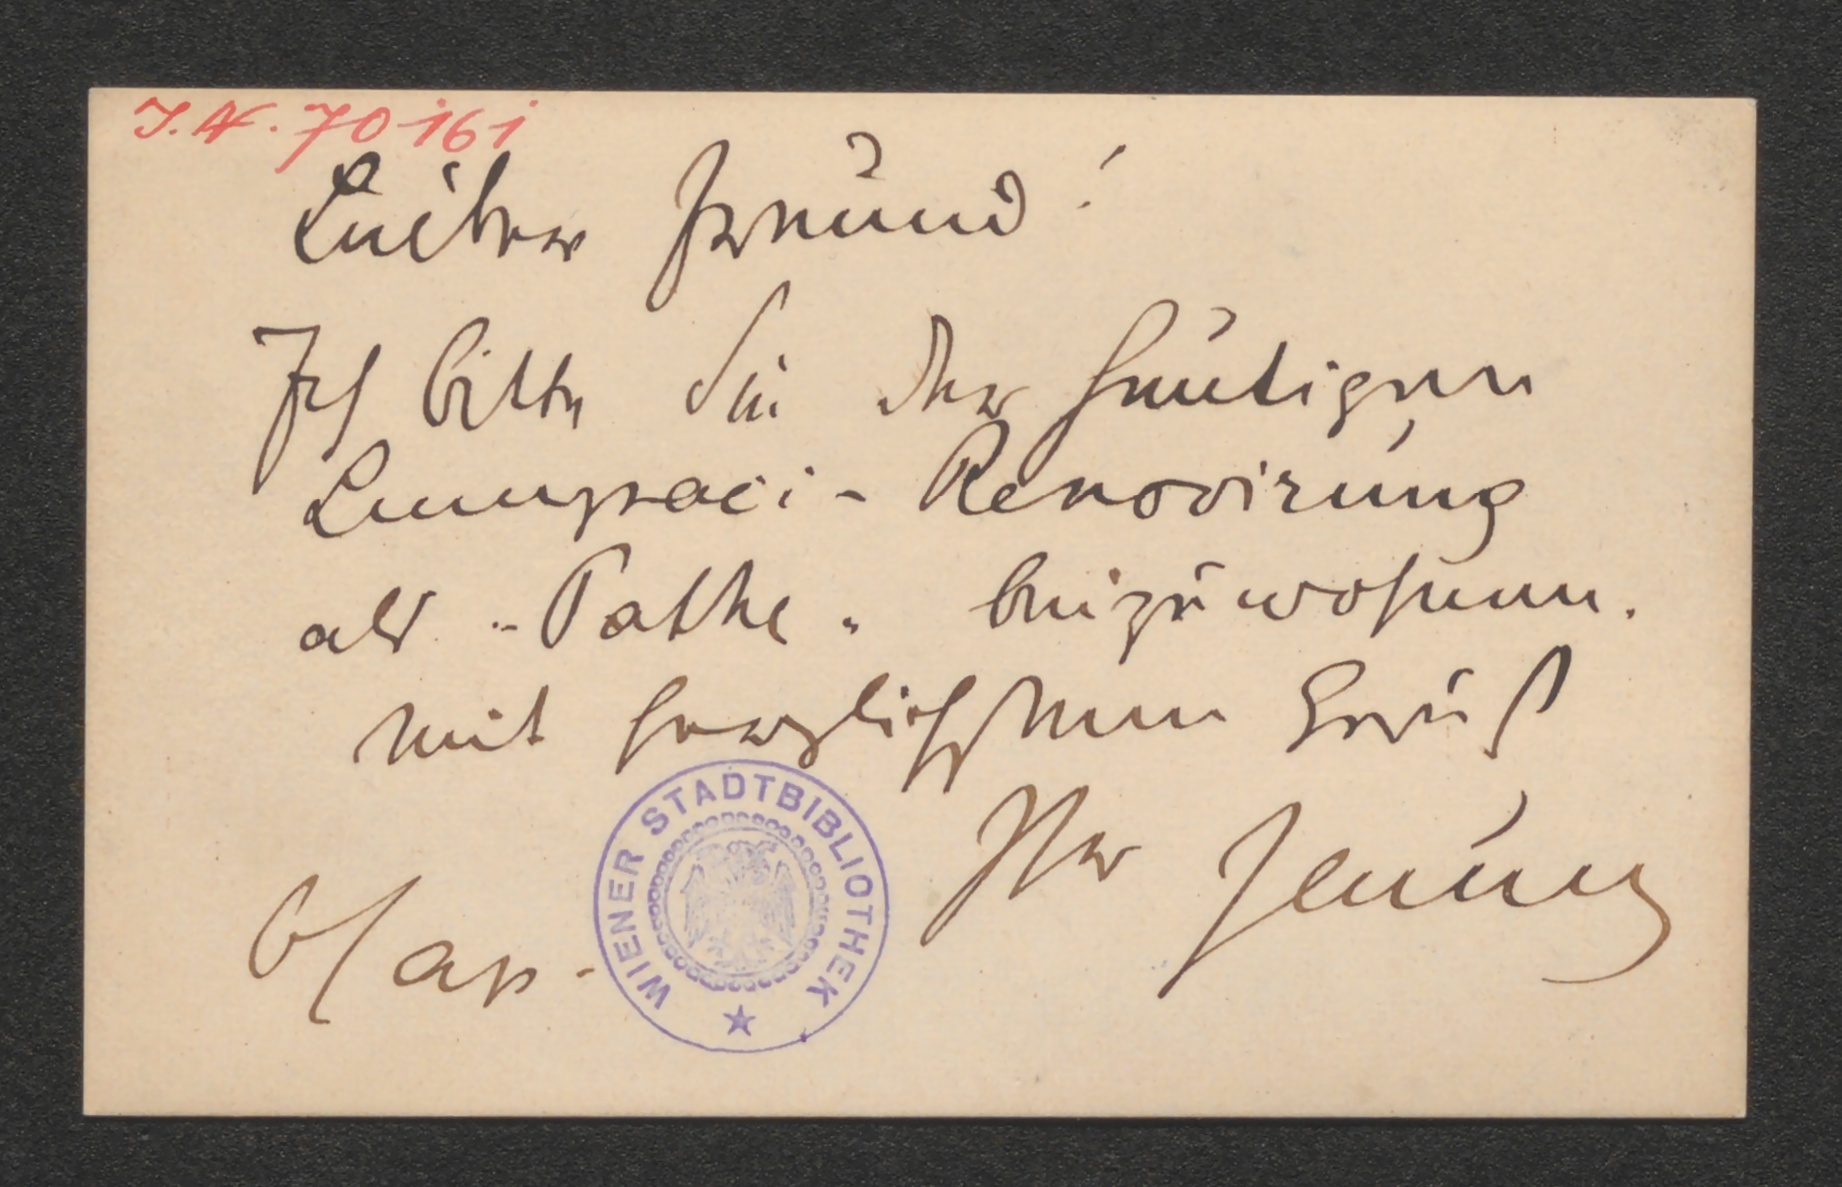 I. N. 70161
Lieber Freund!
Ich bitte Sie der heutigen
Lumpaci-Renovirung
als „Pathe“ beizuwohnen.
Mit herzlichstem Gruß
Ihr
WIENER STADTBIBLIOTHEK